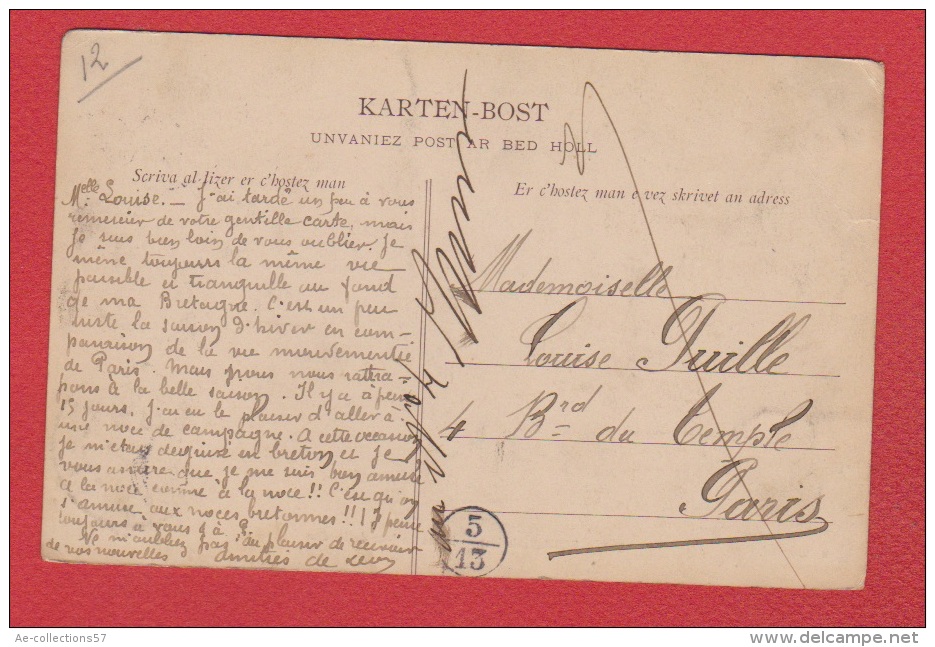 12
KARTEN-BOST
UNVANIEZ POST AR BED HOLL
Scriva al lizer er c'hostez man
Er c'hostez man e vez skrivet an adress
Melle Louise. — J'ai tardé un peu à vous
remercier de votre gentille carte, mais
je suis bien loin de vous oublier. Je
mène toujours la même vie
paisible et tranquille au fond
de ma Bretagne. C'est un peu
juste la saison d'hiver en com-
paraison de la vie mouvementée
de Paris. Mais nous nous rattra-
pons à la belle saison. Il y a à peine
15 jours, j'ai eu le plaisir d'aller à
une noce de campagne. A cette occasion
je m'étais déguisé en breton et je
vous assure que je me suis bien amusé
à la noce comme à la noce!! C'est qu'on
s'amuse aux noces bretonnes!!! Je pense
toujours à vous
Ne m'oubliez pas au plaisir de recevoir
de vos nouvelles amitiés de
Mademoiselle
Louise Puille
4 Brd du Temple
Paris
5
13
Ae-collections57
www.delcampe.net